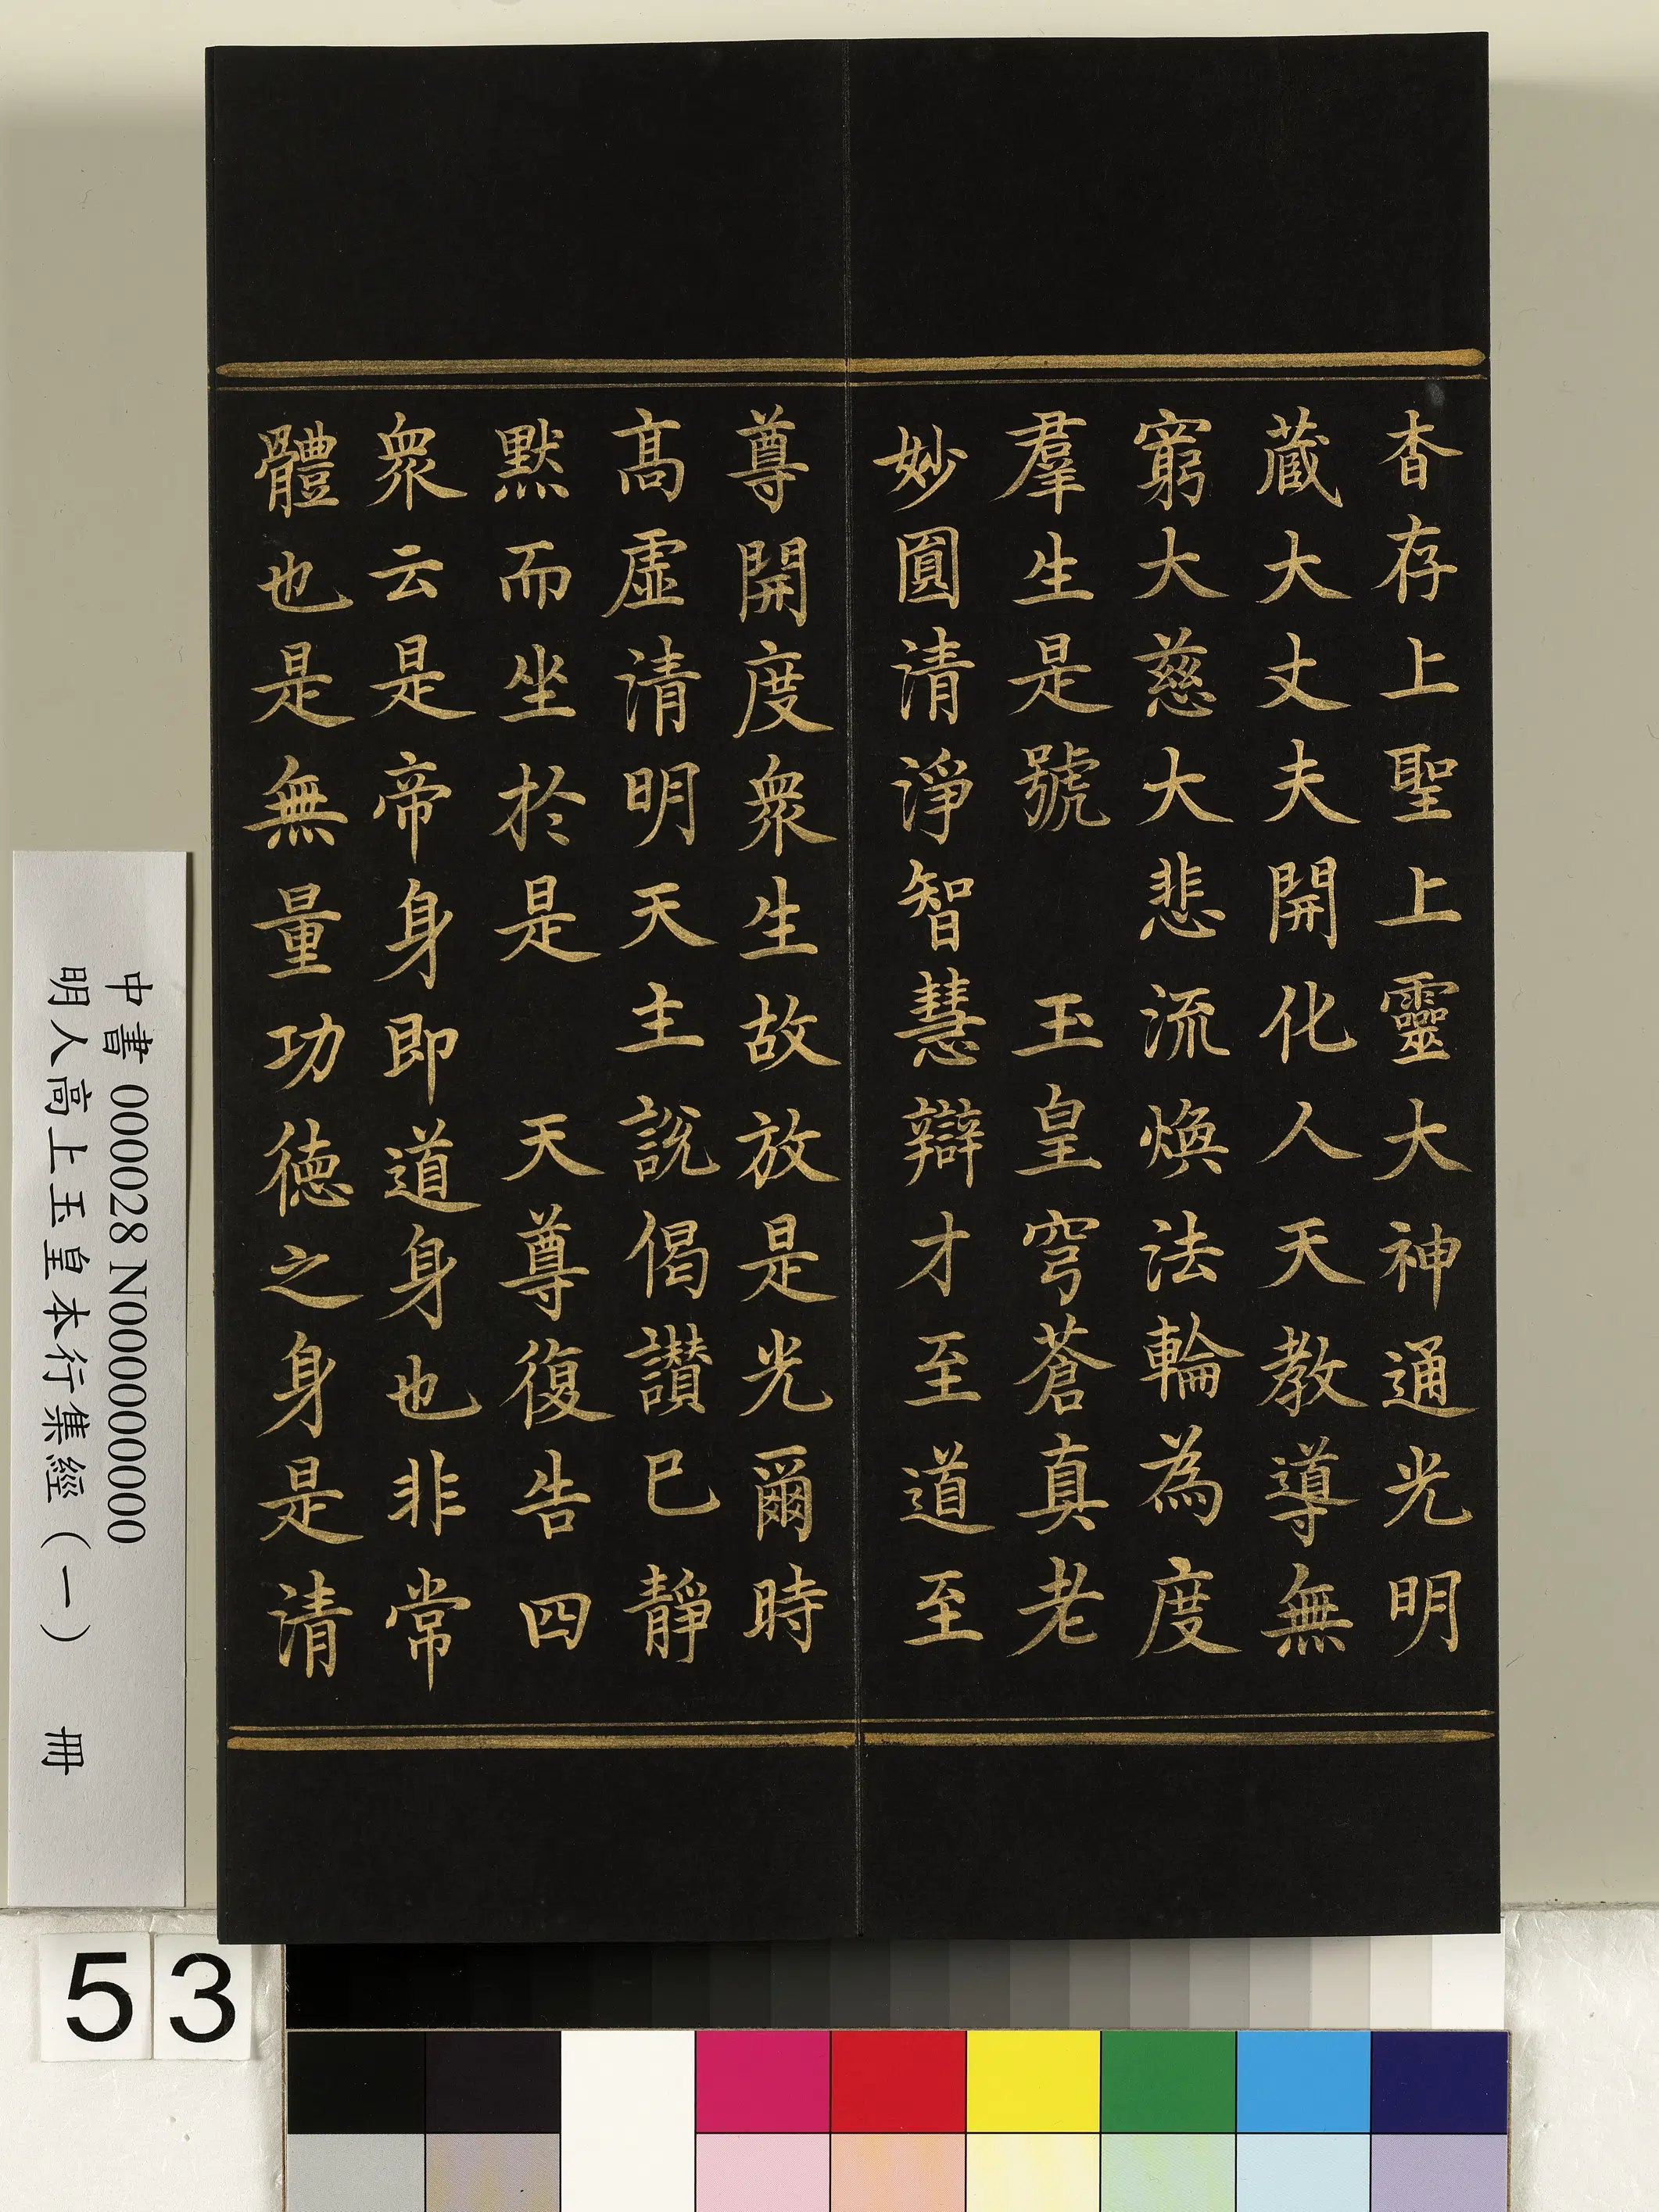 杳存上聖上靈大神通光明
蔵大丈夫開化人天教導無
窮大慈大悲流煥法輪為度
羣生是號　玉皇穹蒼真老
妙圓清淨智慧辯才至道至
尊開度衆生故放是光爾時
髙虛清明天主說偈讃已靜
默而坐於是　天尊復告四
衆云是帝身即道身也非常
體也是無量功德之身是清
中書 000028 N000000000
明人高上玉皇本行集經（一）　冊
53